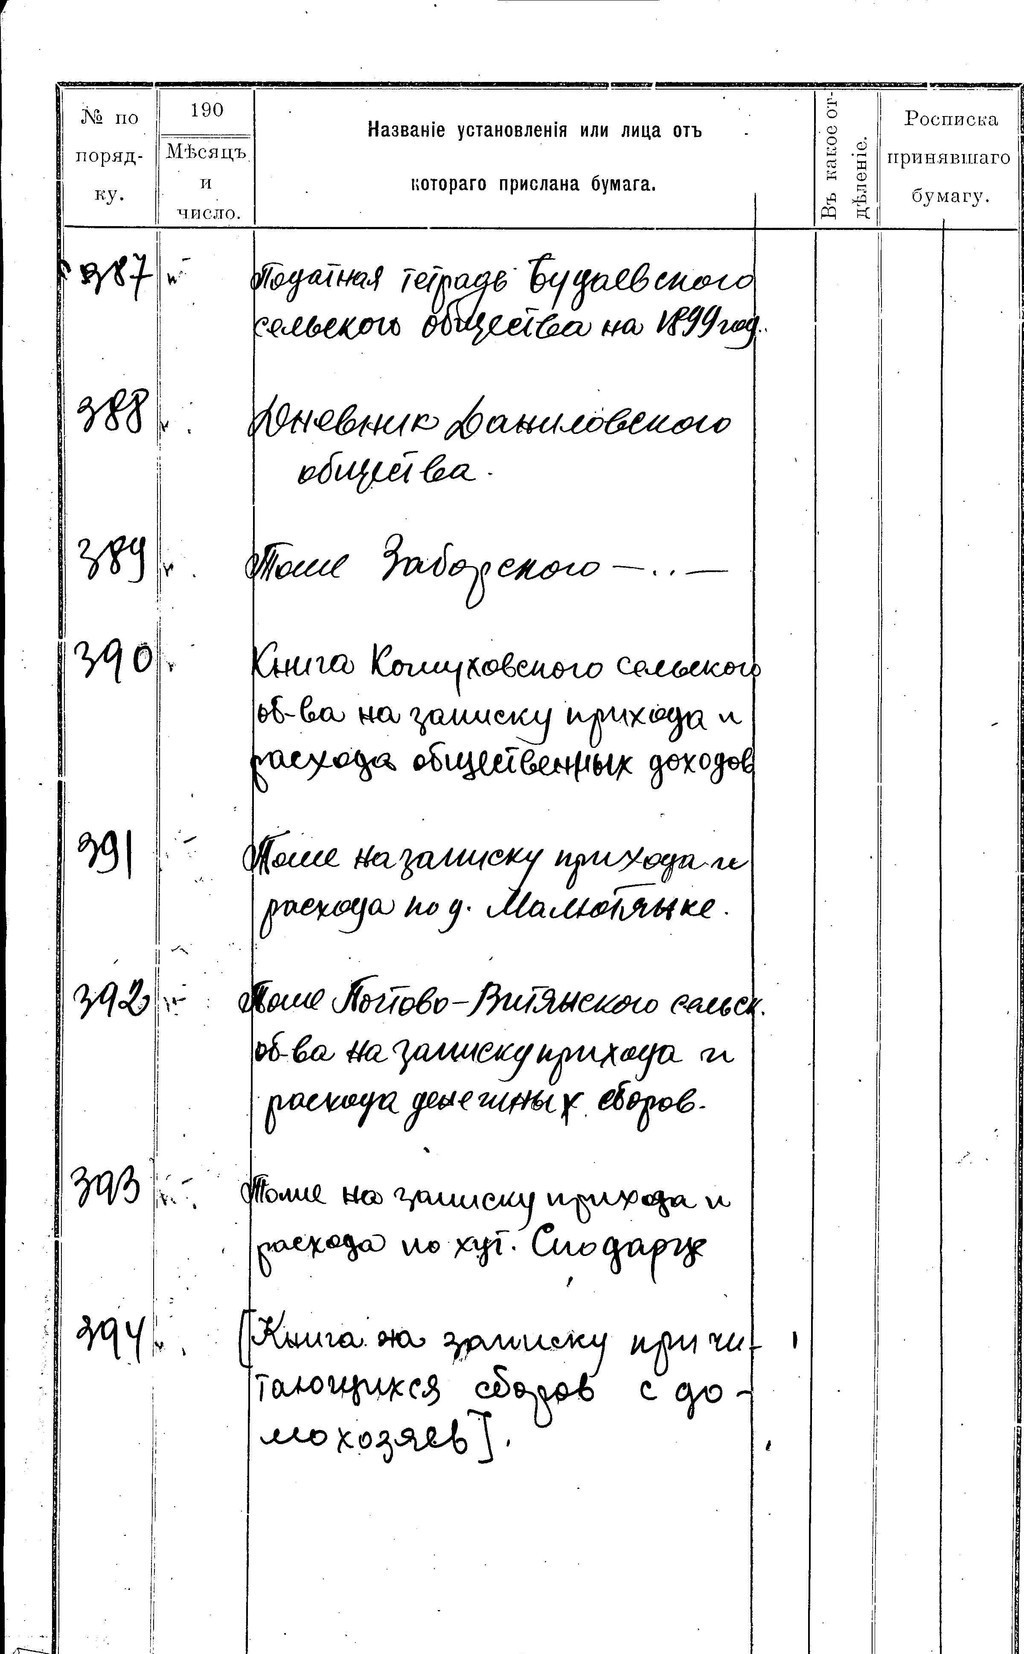 № по поряд- ку.
190
Мѣсяцъ и число.
Названіе установленія или лица отъ
котораго прислана бумага.
Въ какое от- дѣленіе.
Росписка принявшаго бумагу.
387 Податная тетрадь Будаевского
сельского общества на 1899 год.
388 Дневник Даниловского
общества.
389 Тоже Заборского —..—
390 Книга Кожуховского сельского
об-ва на записку прихода и
расхода общественных доходов
391 Тоже на записку прихода и
расхода по д. Малютянке.
392 Тоже Почтово-Витянского сельск.
об-ва на записку прихода и
расхода денежных сборов.
393 Тоже на записку прихода и
расхода по хут.
394 [Книга на записку причи-
тающихся сборов с до-
мохозяев].